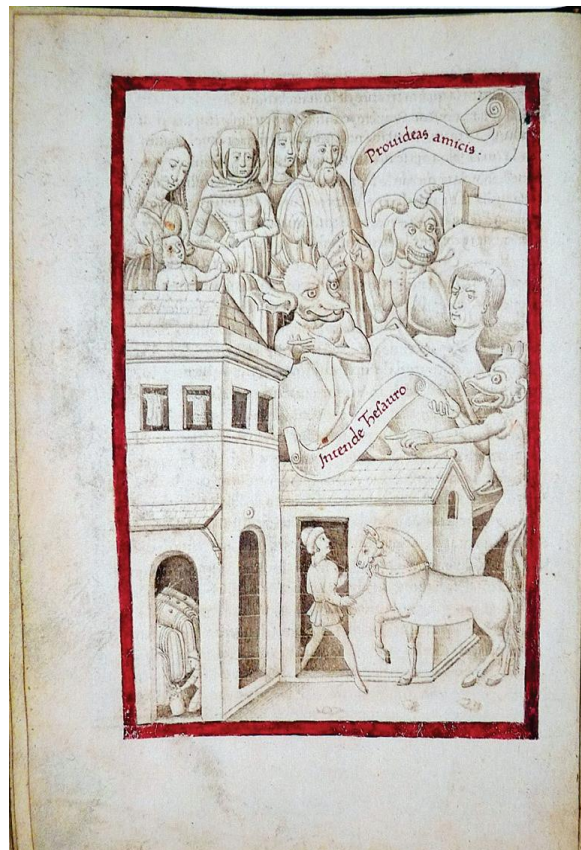 Prouideas amicis.
Intende Thesauro